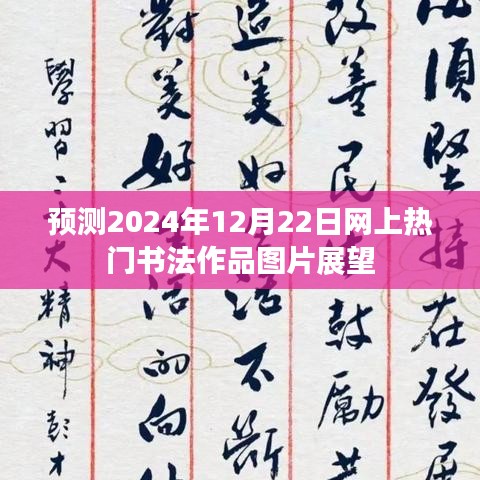 預测2024年12月22日网上热
门书法作品图片展望
須堅持在發展
改善民鼓勵
造美好活不斷
對美好活的向
學習二大精神彭才